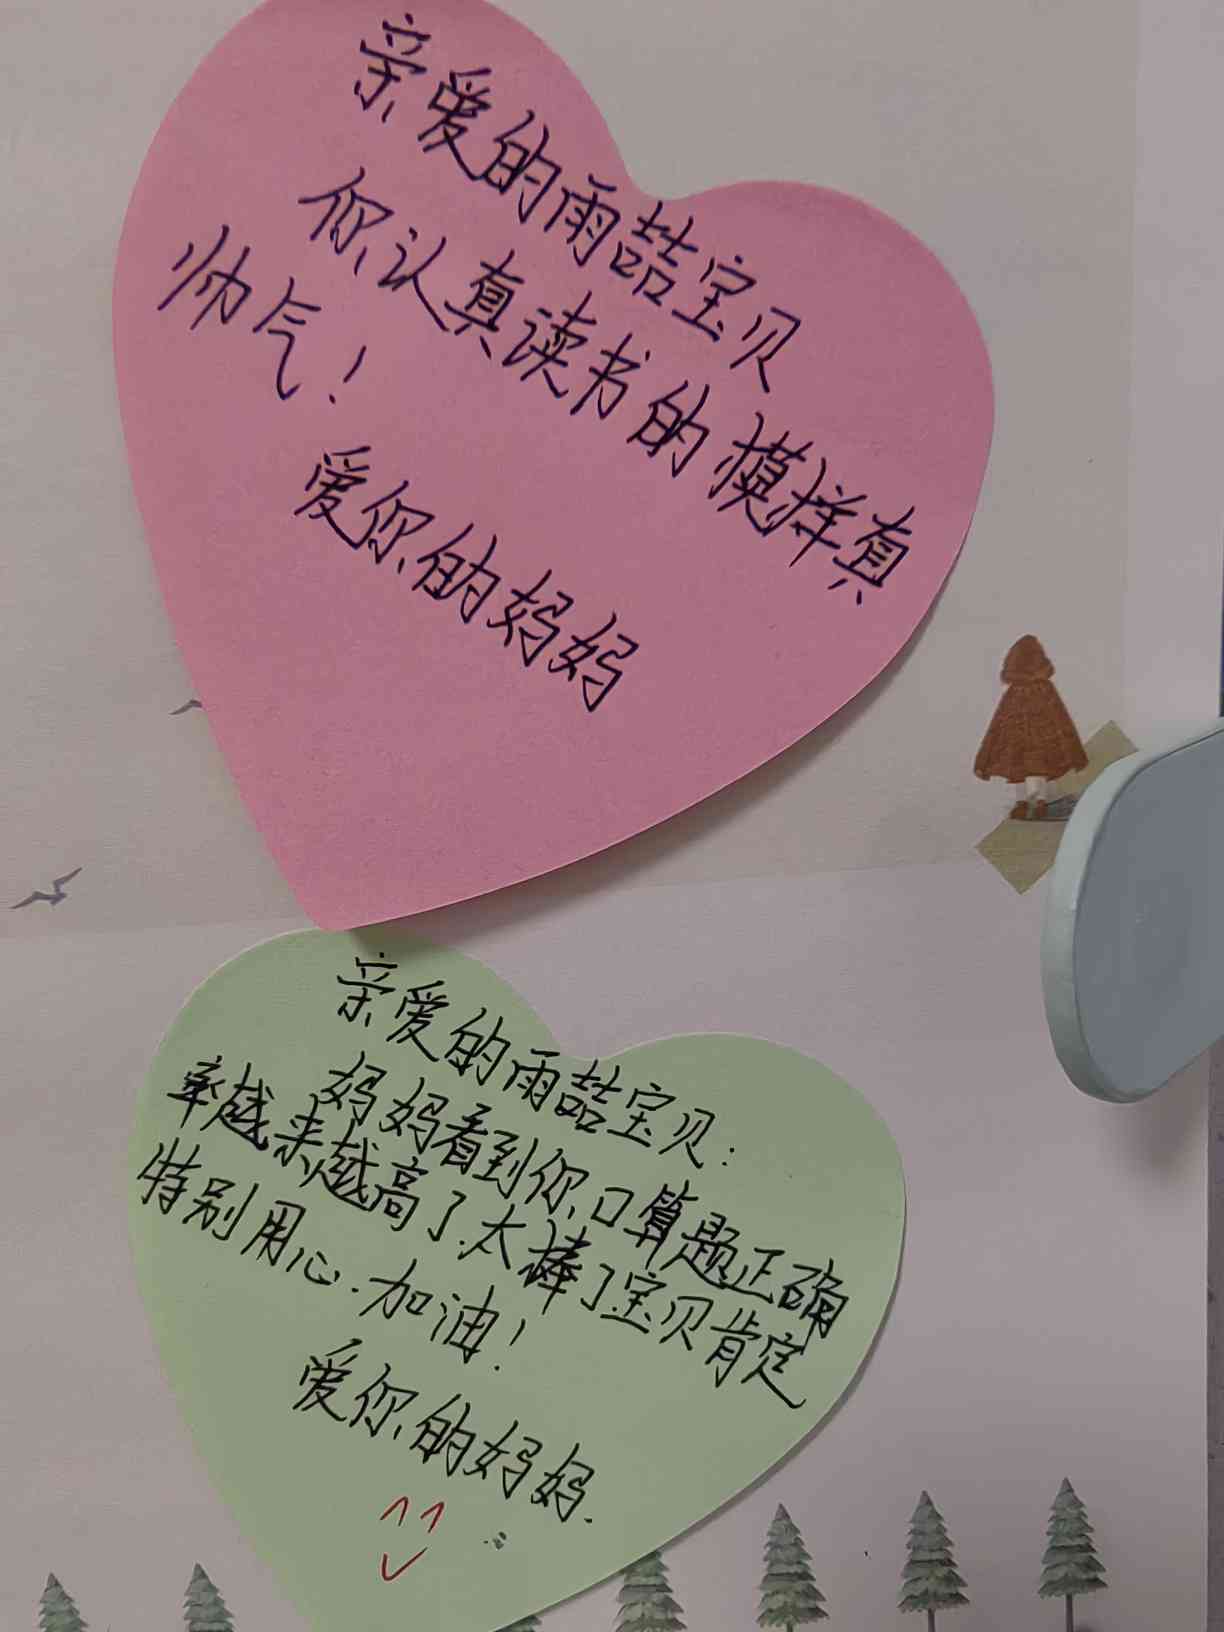 亲爱的雨喆宝贝
你认真读书的模样真
帅气！
爱你的妈妈
亲爱的雨喆宝贝：
妈妈看到你口算题正确
率越来越高了.太棒了宝贝肯定
特别用心.加油！
爱你的妈妈.